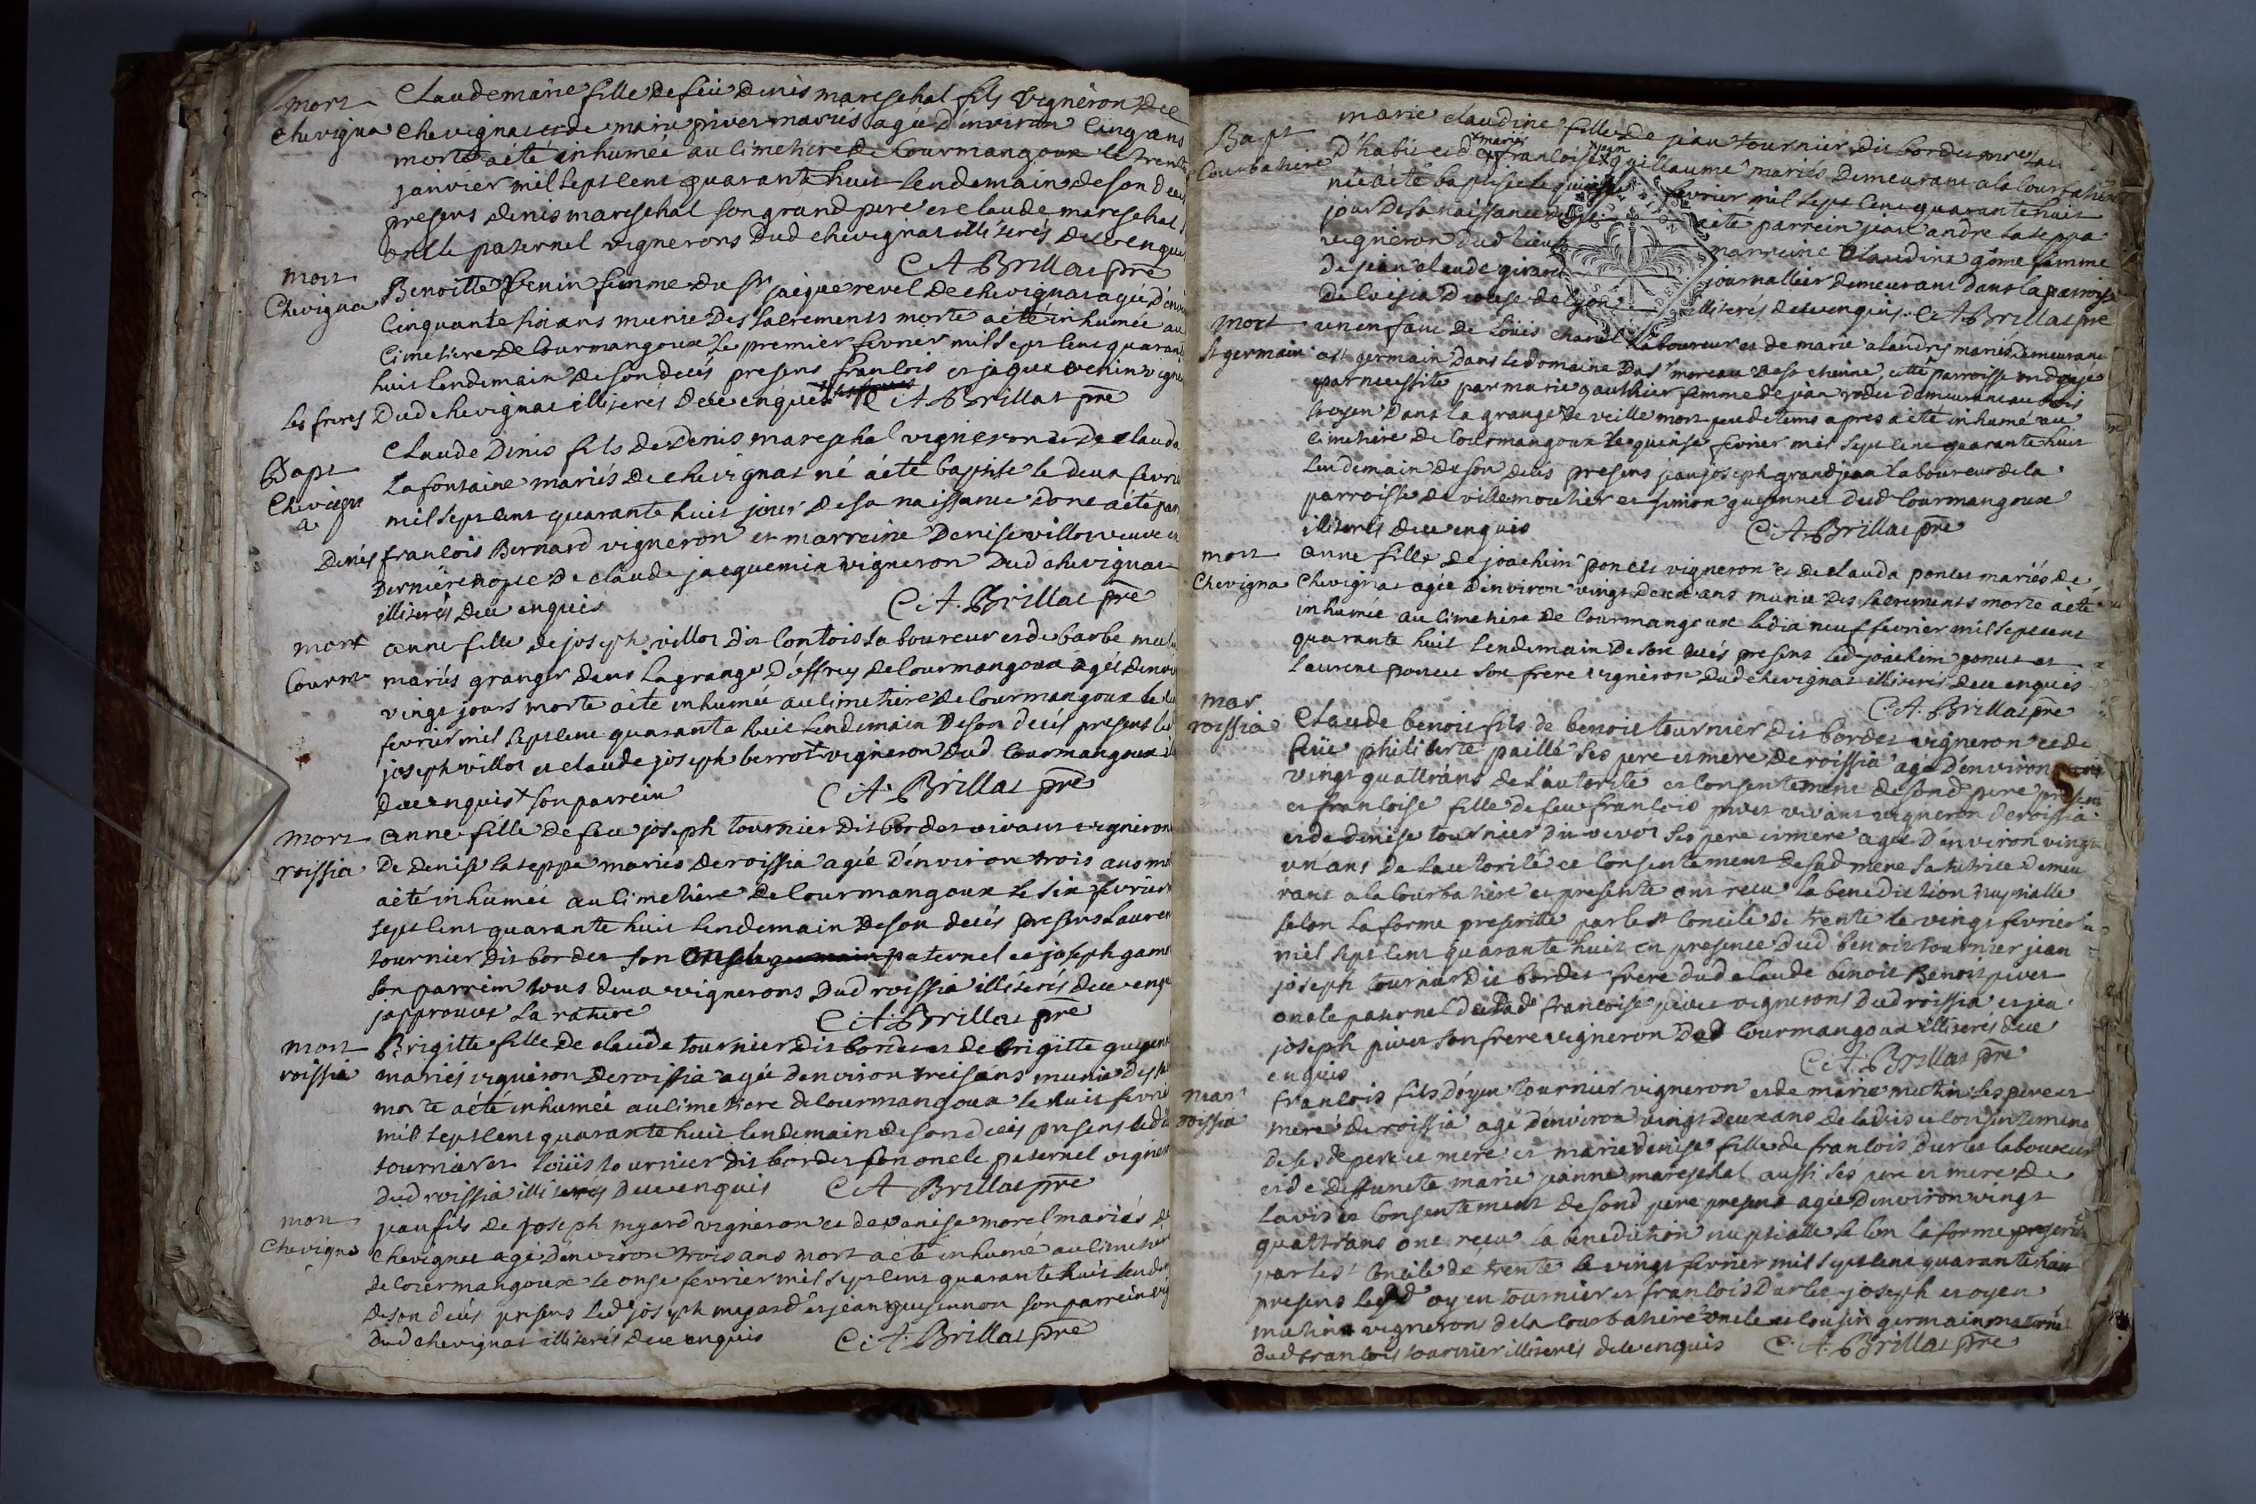 mort
Chevigna
Claudemarie fille de feu denis mareschal fils vigneron de
Chevignat et de marie piver mariés agée d'environ cinq ans
morte a été inhumée au cimetiere de Courmangoux le trente
janvier mil sept cent quarante huit lendemain de son deces
presens denis mareschal son grand pere et claude mareschal
oncle paternel vignerons dud chevignat illiterés de ce enquis
C. A. Brillat pre
mort
Chevigna
Benoitte venin femme du sr jaque revel de chevignat agée d'envi
cinquante six ans munie des sacrements morte a eté inhumée au
cimetiere de Courmangoux le premier fevrier mil sept cent quarante
huit lendemain de son deces presens francois et jaque venin vigne
les freres dud chevignat illiterés de ce enquis C A Brillat pre
Bapt
Chevign
a
Claude Denis fils de Denis mareschal vigneron et de clauda
Lafontaine mariés de chevignat né a été baptisé le deux fevrier
mil sept cent quarante huit jour de sa naissance dont a été par
Denis francois Bernard vigneron et marreine Denise villot veuve en
derniere nopce de claude jacquemin vigneron dud chevignat
illiterés de ce enquis C. A. Brillat pre
mort
Courm
anne fille de joseph villot dit Contois laboureur et de barbe
mariés granger dans la grange d'effrey de Courmangoux agée denvi
vingt jours morte a été inhumée au cimetiere de Courmangoux le
fevrier mil sept cent quarante huit lendemain de son deces presens led
joseph villot et claude joseph berrot x vigneron dud Courmangoux
de ce enquis x son parrein C. A. Brillat pre
mort
roissia
anne fille de feu joseph tournier dit bordet vivant vigneron
de denise laseppa mariés de roissia agée d'environ trois ans mor
a été inhumée au cimetiere de Courmangoux le six fevrier
sept cent quarante huit lendemain de son deces presens Lauren
tournier dit bordet son oncle germain paternel et joseph
son parrein tous deux vignerons dud roissia illiterés de ce enqu
japprouve la rature C. A. Brillat pre
mort
roissia
Brigitte fille de claude tournier dit bordet et de brigitte
mariés vigneron de roissia agée denviron treise ans munie des
morte a été inhumée au cimetiere de Courmangoux le huit fevrier
mil sept cent quarante huit lendemain de son deces presens led
tournier et loüis tournier dit bordet son oncle paternel vigner
dud roissia illiterés de ce enquis C. A. Brillat pre
mort
Chevigna
jean fils de joseph mgard vigneron et de denise morel mariés de
Chevignat agé denviron trois ans mort a été inhumé au cimetiere
de Courmangoux le onze fevrier mil sept cent quarante huit lendem
de son deces presens led joseph megard et jean son parrein
dud chevignat illiterés de ce enquis C. A. Brillat pre
Bapt
Courbatiere
marie claudine fille de jean tournier dit bordet
d'habit et d francoise guillaume mariés demeurant a la Courbatiere
née a été baptisée le quinze fevrier mil sept cent quarante huit
jour de sa naissance a été parrein jean andré laseppa
vigneron dud lieu marreine Claudine gome femme
de jean claude girard journallier demeurant dans la parroisse
de loissia diocese de lyon illiterés de ce enquis. C. A. Brillat pre
mort
St germain
un enfant de Loüis chanel laboureur et de marie alexandry mariés demeurant
a st germain dans le domaine du sr moreau de st etienne, cette parroisse ondoyé
par necessité par marie gauthier femme de jean rodet demeurant au bois
troyen dans la grange de veille mort peu de tems apres a été inhumé au
cimetiere de Courmangoux le quinse fevrier mil sept cent quarante huit
lendemain de son deces presens jean joseph grandjean laboureur de la
parroisse de villemoutier et simon guyennet dud Courmangoux
illiterés de ce enquis C. A. Brillat pre
mort
Chevigna
anne fille de joachim poncet vigneron et de clauda poncet mariés de
Chevignat agée denviron vingt deux ans munie des sacrements morte a été
inhumée au cimetiere de Courmangoux le dix neuf fevrier mil sept cent
quarante huit lendemain de son deces presens led joachim poncet et
laurent poncet son frere vigneron dud chevignat illiterés de ce enquis
C. A. Brillat pre
mar
roissia
Claude benoit fils de benoit tournier dit bordet vigneron et de
feüe philiberte paillé ses pere et mere de roissia agé d'environ
vingt quattr'ans de l'autorité et consentement de sond pere present
et francoise fille de feu francois piver vivant vigneron de roissia
et de denise tournier dit vivor ses pere et mere agée d'environ vingt
un ans de l'autorité et consentement de sad mere sa tutrice demeu
rant a la Courbatiere et presente ont recu la benediction nuptialle
selon la forme prescritte par le st Concile de trente le vingt fevrier
mil sept cent quarante huit en presence dud benoit tournier jean
joseph tournier dit bordet frere dud claude benoit Benoit piver
oncle paternel de lad francoise piver vignerons dud roissia et jea
joseph piver son frere vigneron dud Courmangoux illiterés de ce
enquis C. A. Brillat pre
mar
roissia
francois fils d'oyen tournier vigneron et de marie mathin ses pere et
mere de roissia agé d'environ vingt deux ans de l'avis et consentement
de sesd pere et mere et marie denise fille de francois Durlet laboureur
et de deffuncte marie jeanne mareschal aussi ses pere et mere de
l'avis et consentement de sond pere present agée denviron vingt
quattr'ans ont recu la benediction nuptialle selon la forme prescrite
par le st Concile de trente le vingt fevrier mil sept cent quarante huit
presens lesd oyen tournier et francois Durlet joseph et oyen
mathin vignerons de la Courbatiere oncle et cousin germain maternel
dud francois tournier illiterés de ce enquis C. A. Brillat pre